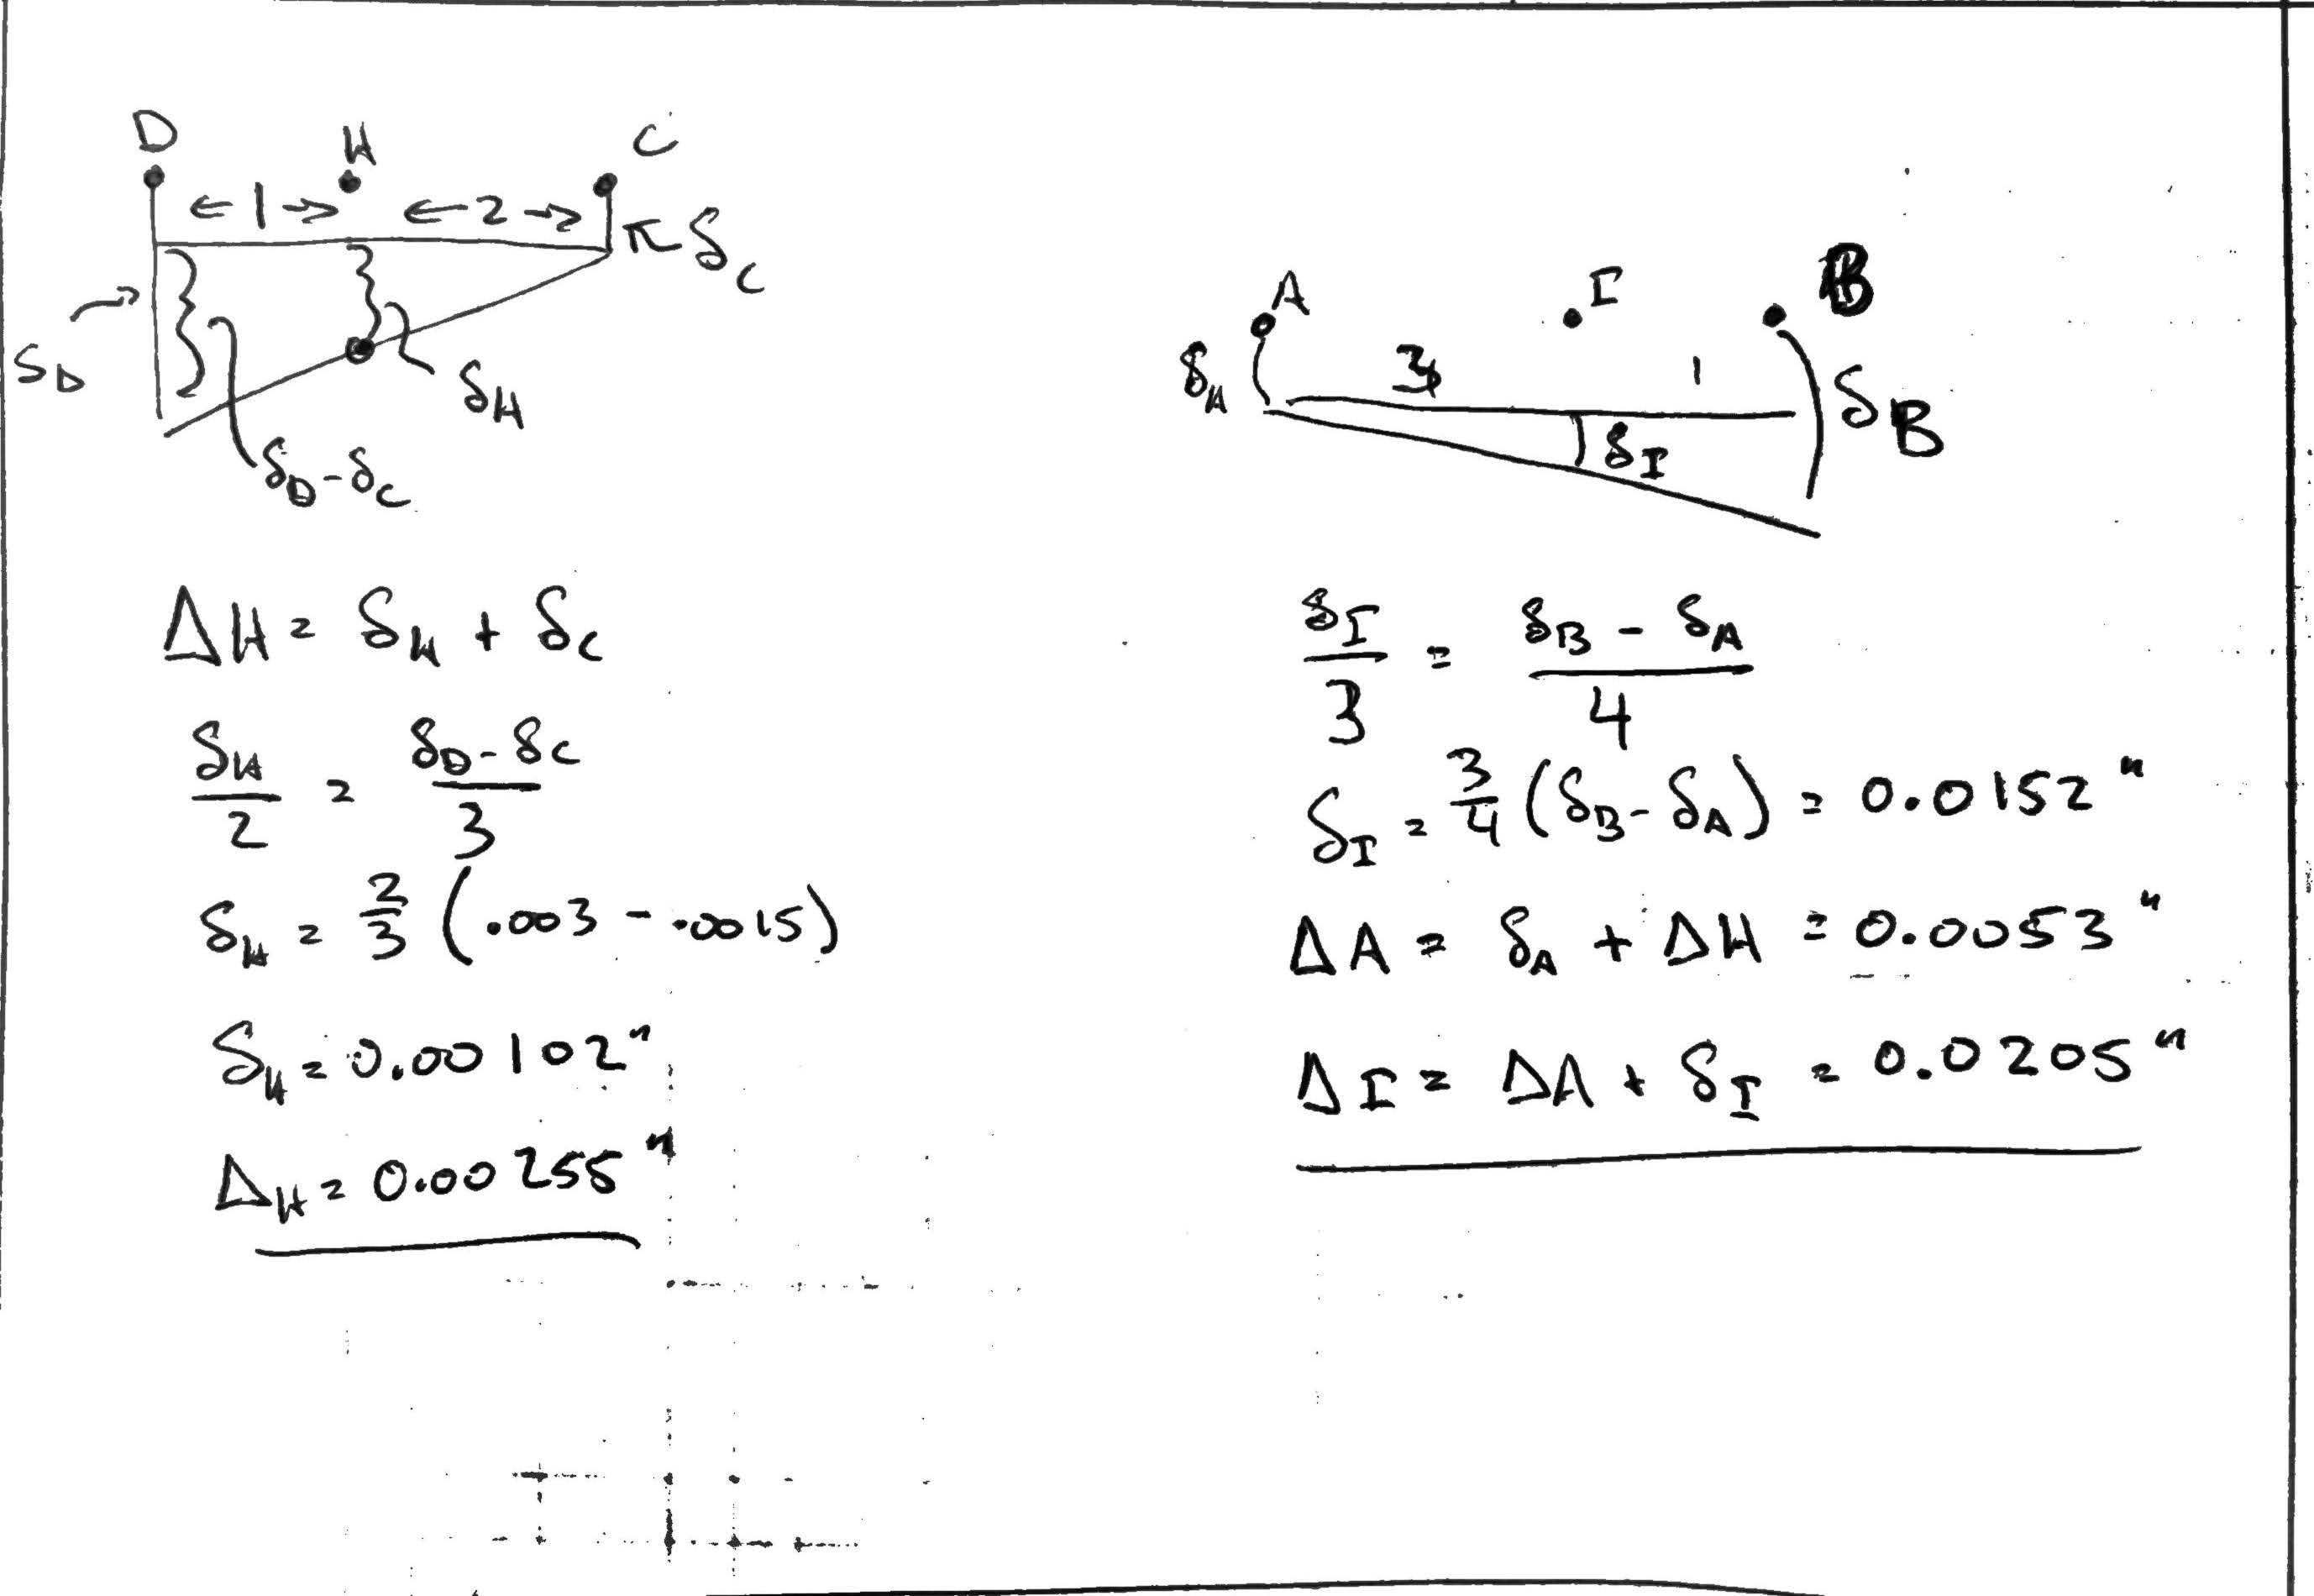 D H C
←1→ ←2→
↖ δC
δD
δH
δD-δC
ΔH = δH + δC
δH/2 = (δD-δC)/3
δH = 2/3 (.003 - .0015)
δH = 0.00102"
ΔH = 0.00255"
A I B
δA 3 1 δB
δI
δI/3 = (δB - δA)/4
δI = 3/4 (δB - δA) = 0.0152"
ΔA = δA + ΔH = 0.0053"
ΔI = ΔA + δI = 0.0205"